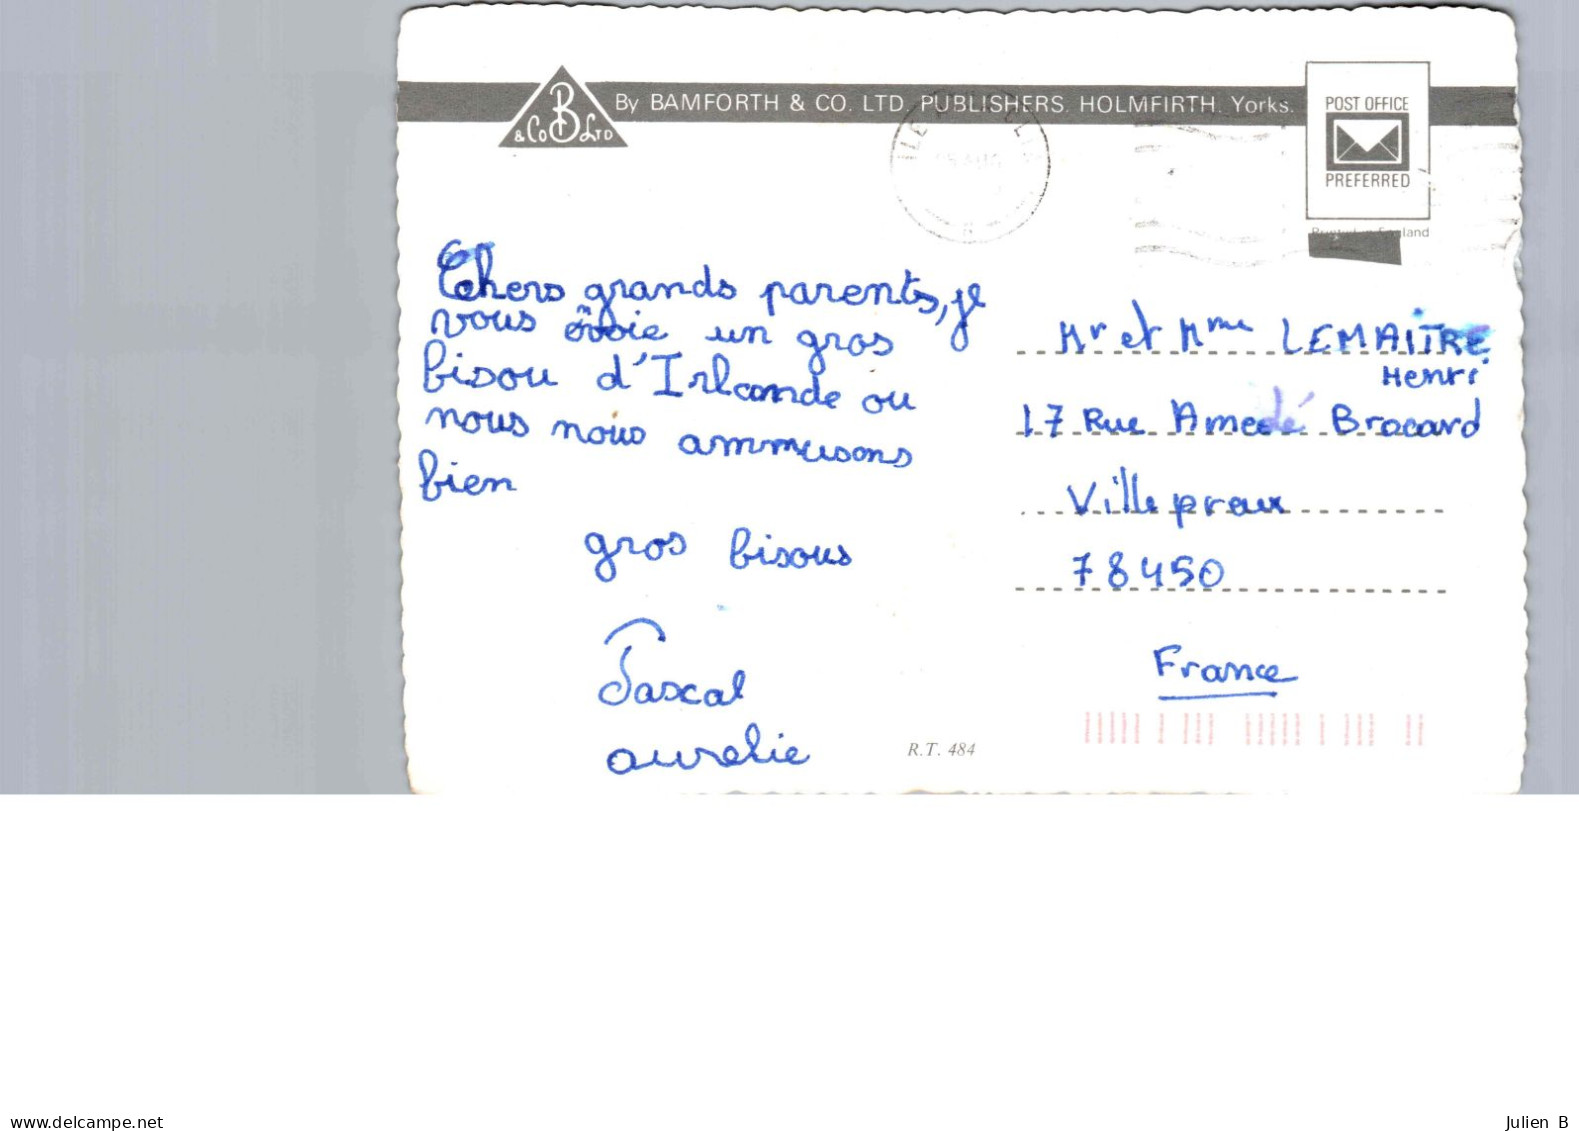 By BAMFORTH & CO. LTD. PUBLISHERS. HOLMFIRTH. Yorks.
B
& Co LTD
POST OFFICE
PREFERRED
Printed in England
Chers grands parents, je
vous envoie un gros
bisou d'Irlande ou
nous nous ammusons
bien
gros bisous
Pascal
aurelie
Mr et Mme LEMAITRE
Henri
17 Rue Amedé Brocard
Villepreux
78450
France
R.T. 484
delcampe.net
Julien B